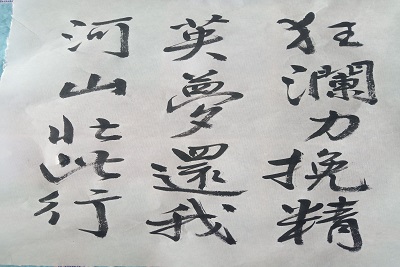 狂瀾力挽精
英夢還我
河山壯此行